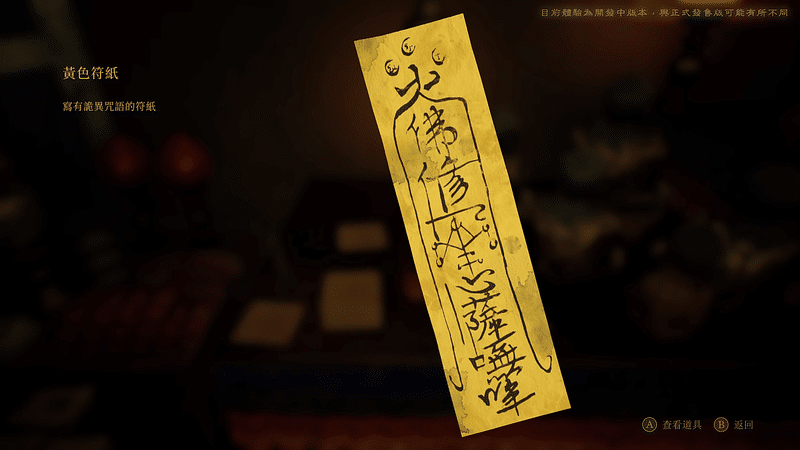 目前體驗為開發中版本，與正式發售版可能有所不同
黃色符紙
寫有詭異咒語的符紙
火
佛
修
心
薩
嘸
A 查看道具 B 返回